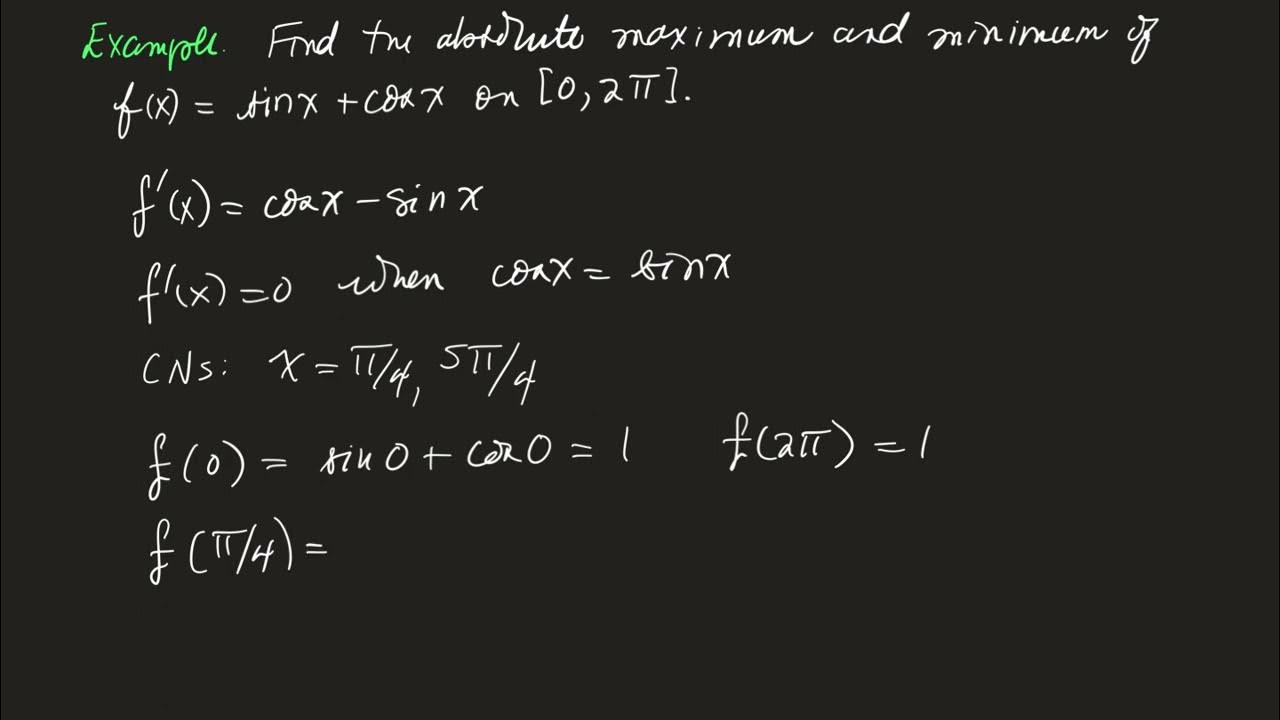 Example. Find the absolute maximum and minimum of
f(x) = sinx + cosx on [0, 2π].
f'(x) = cosx - sinx
f'(x) = 0 when cosx = sinx
CNs: x = π/4, 5π/4
f(0) = sin0 + cos0 = 1 f(2π) = 1
f(π/4) =